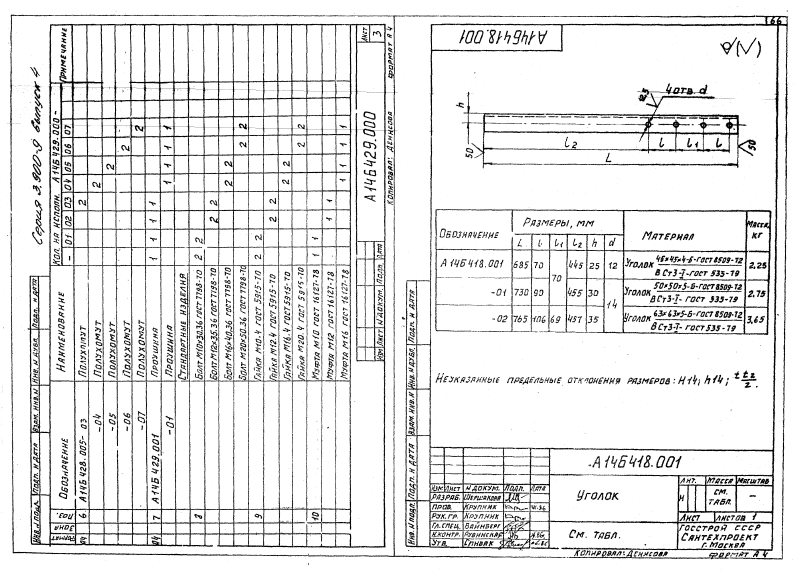 166
Серия 3.900-9 выпуск 4
Формат
Зона
Поз.
Обозначение
Наименование
Кол. на исполн. А14Б 429.000-
Примечание
- 01 02 03 04 05 06 07
А4 6 А14Б 428.005- 03 Полухомут 2
-04 Полухомут 2
-05 Полухомут 2
-06 Полухомут 2
-07 Полухомут 2
А4 7 А14Б 429.001 Проушина 1 1 1 1
-01 Проушина 1 1 1 1
Стандартные изделия
8 Болт М10×30.36 ГОСТ 7798-70 2 2
Болт М12×35.36 ГОСТ 7798-70 2 2
Болт М16×40.36 ГОСТ 7798-70 2 2
Болт М20×50.36 ГОСТ 7798-70 2 2
9 Гайка М10.4 ГОСТ 5915-70 2 2
Гайка М12.4 ГОСТ 5915-70 2 2
Гайка М16.4 ГОСТ 5915-70 2 2
Гайка М20.4 ГОСТ 5915-70 2 2
10 Муфта М10 ГОСТ 16127-78 1 1
Муфта М12 ГОСТ 16127-78 1 1
Муфта М16 ГОСТ 16127-78 1 1 1 1
Инв.N подл. Подп. и дата Взам. инв.N Инв.N дубл. Подп. и дата
Изм Лист N докум. Подп. Дата
А14Б429.000
Лист
3
Копировал: Денисова
Формат А4
А14Б418.001
4 отв. d
12,5
h
50
50
l2 l l1 l
L
Обозначение Размеры, мм Материал Масса, кг
L l l1 l2 h d
А14Б 418.001 685 70 70 445 25 12 Уголок 45×45×4-Б-ГОСТ 8509-72 2,25
В Ст3-I-ГОСТ 535-79
-01 730 90 455 30 14 Уголок 50×50×5-Б-ГОСТ 8509-72 2,75
В Ст3-I-ГОСТ 535-79
-02 765 106 69 457 35 Уголок 63×63×5-Б-ГОСТ 8509-72 3,65
В Ст3-I-ГОСТ 535-79
Неуказанные предельные отклонения размеров: H14; h14; ± t2/2.
Инв.N подл. Подп. и дата Взам. инв.N Инв.N дубл. Подп. и дата
А14Б418.001
Изм Лист N докум. Подп. Дата
Разраб. Шершакова
Пров. Крупник
Рук.гр. Крупник
Гл.спец. Вайнберг
Н.контр. Рубинская
Утв. Спивак
Уголок
См. табл.
Лит. Масса Масштаб
И См. табл. -
Лист Листов 1
Госстрой СССР
Сантехпроект
г. Москва
Копировал: Денисова
Формат А4